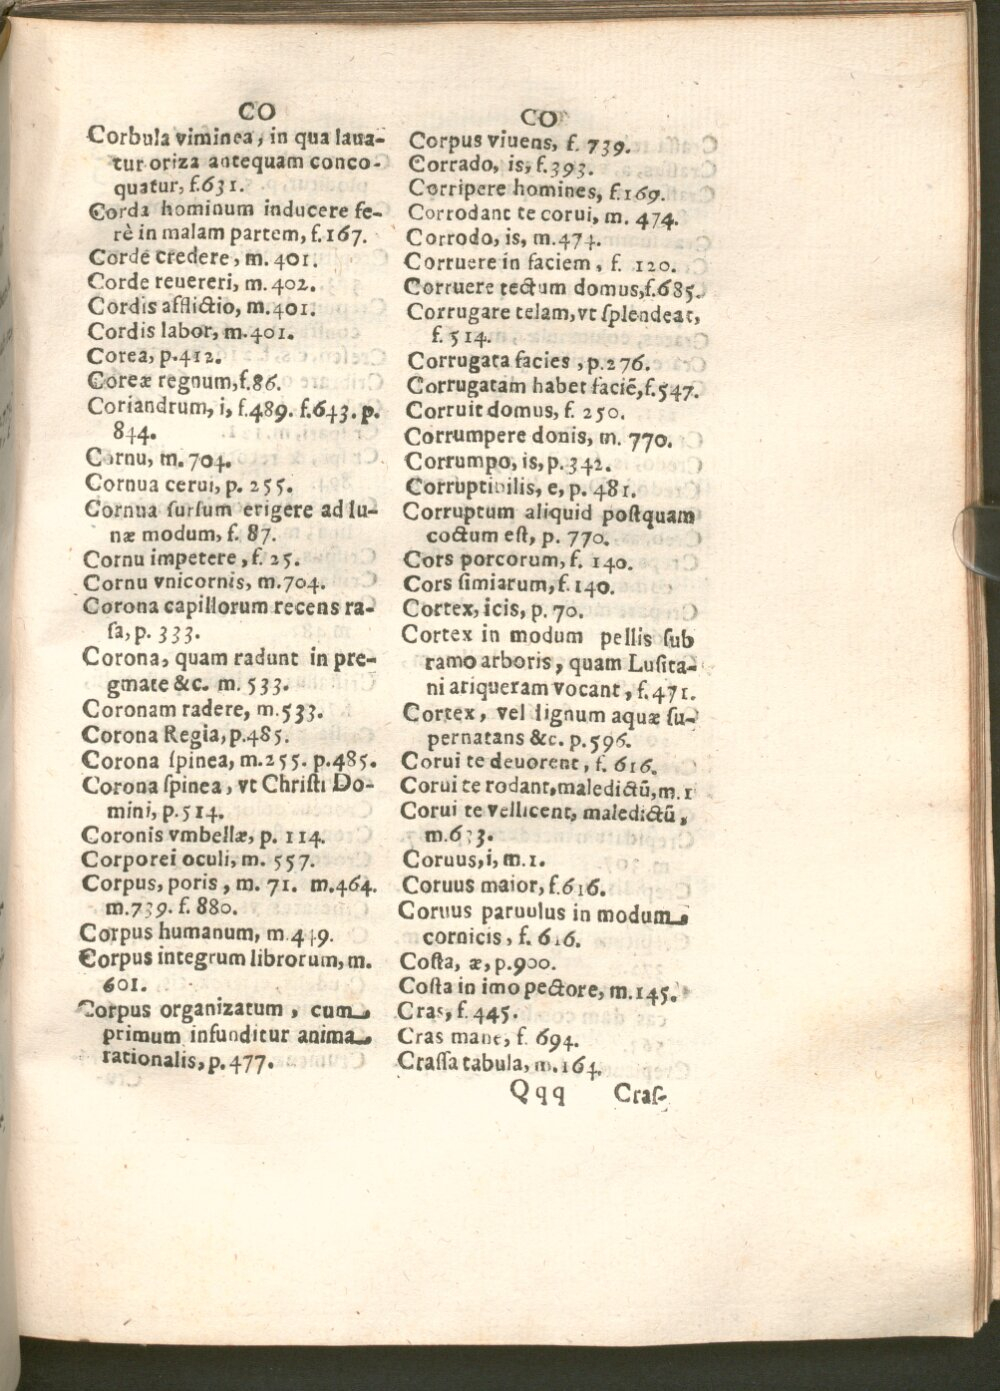 CO
Corbula viminea, in qua laua-
tur oriza antequam conco-
quatur, f.631.
Corda hominum inducere fe-
rè in malam partem, f.167.
Corde credere, m. 401.
Corde reuereri, m. 402.
Cordis afflictio, m.401.
Cordis labor, m.401.
Corea, p.412.
Coreæ regnum, f.86.
Coriandrum, i, f.489. f.643. p.
844.
Cornu, m. 704.
Cornua cerui, p. 255.
Cornua ſurſum erigere ad lu-
næ modum, f. 87.
Cornu impetere, f. 25.
Cornu vnicornis, m.704.
Corona capillorum recens ra-
ſa, p. 333.
Corona, quam radunt in pre-
gmate &c. m. 533.
Coronam radere, m.533.
Corona Regia, p.485.
Corona ſpinea, m.255. p.485.
Corona ſpinea, vt Chriſti Do-
mini, p.514.
Coronis vmbellæ, p. 114.
Corporei oculi, m. 557.
Corpus, poris, m. 71. m.464.
m.739. f. 880.
Corpus humanum, m 449.
Corpus integrum librorum, m.
601.
Corpus organizatum, cum
primum infunditur anima
rationalis, p.477.
CO
Corpus viuens, f. 739.
Corrado, is, f.393.
Corripere homines, f.169.
Corrodant te corui, m. 474.
Corrodo, is, m.474.
Corruere in faciem, f. 120.
Corruere tectum domus, f.685.
Corrugare telam, vt ſplendeat,
f. 514.
Corrugata facies, p.276.
Corrugatam habet faciẽ, f.547.
Corruit domus, f. 250.
Corrumpere donis, m. 770.
Corrumpo, is, p.342.
Corruptibilis, e, p. 481.
Corruptum aliquid poſtquam
coctum eſt, p. 770.
Cors porcorum, f. 140.
Cors ſimiarum, f.140.
Cortex, icis, p. 70.
Cortex in modum pellis ſub
ramo arboris, quam Luſita-
ni ariqueram vocant, f.471.
Cortex, vel lignum aquæ ſu-
pernatans &c. p.596.
Corui te deuorent, f. 616.
Corui te rodant, maledictũ, m.1
Corui te vellicent, maledictũ,
m.633.
Coruus, i, m.1.
Coruus maior, f.616.
Coruus paruulus in modum
cornicis, f. 616.
Coſta, æ, p.900.
Coſta in imo pectore, m.145.
Cras, f. 445.
Cras mane, f. 694.
Craſſa tabula, m.164.
Qqq Craſ-